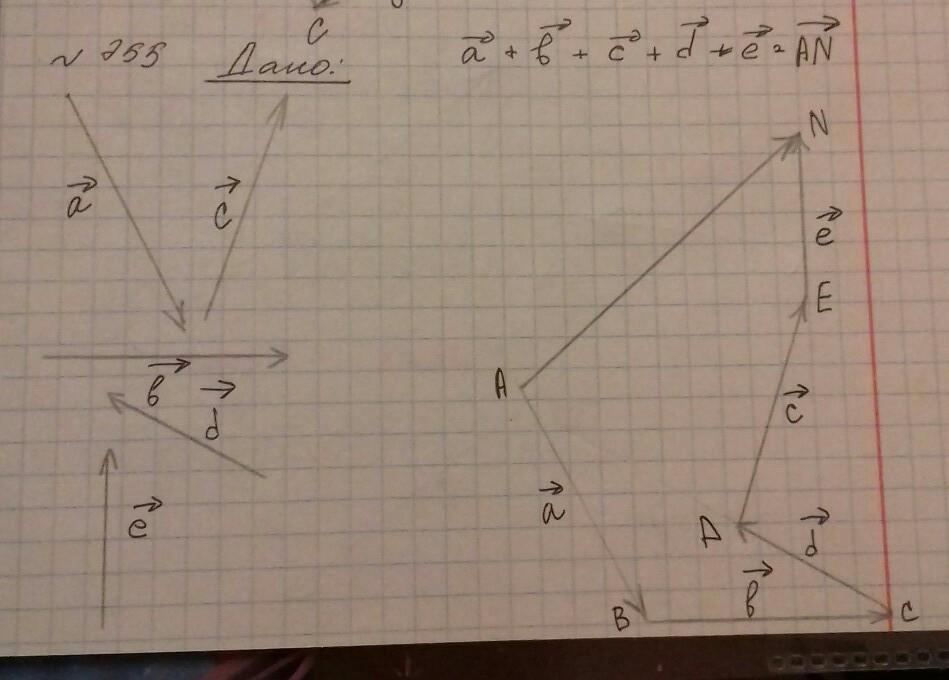 C
N 755
Дано:
a⃗ + b⃗ + c⃗ + d⃗ + e⃗ = AN⃗
a⃗
c⃗
b⃗
d⃗
e⃗
N
e⃗
E
A
c⃗
a⃗
D
d⃗
b⃗
B
C